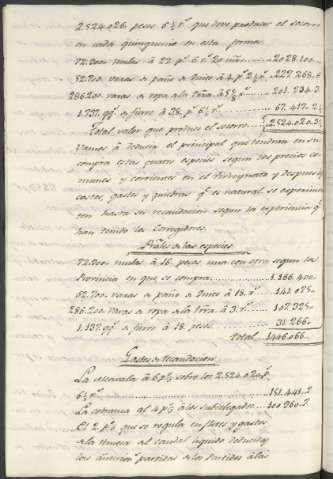 2.524.026 pesos 6½ r.s que debe producir el socorro
en cada quinquenio en esta forma
72.900 mulas à 22 p.s 6 r.s 20 más......2028.100
52.700. varas de paño de Quito à 4 p.s 2½ r.s..227.268.6
286.200. varas de ropa de la tierra, à 5⅝ r.s.....201.234.3
1.737. qq.s de fierro à 38. p.s 6½ r.s......67.417.2½
Total valor que produce el socorro...2524.020.3½
Vamos à deducir el principal que tendran en su
compra estas quatro especies segun los precios co-
munes y corrientes en el Virreynato y despues
costos, gastos y quiebras q.e es natural se experimen
ten hasta su recaudacion segun la experiencia q.e
han tenido los Corregidores.
Pral.es de las especies
72.900 mulas à 16. pesos una con otra segun la
Provincia en que se compra......1.166.400.
52.700. varas de paño de Quito à 18. r.s....141.075.
286.200. varas de ropa de la tierra à 3. r.s....107.325.
1.737 qq.s de fierro à 18. pesos......31.266.
Total..1446.066.
Gastos de recaudacion
La Alcavala à 6 p% sobre los 2.524.020 p.s
6½ r.s......151.441.2
La cobranza al 4 p% à los Subdelegados...100.960.7
El 2 p% que se regula en fletes y gastos
de la remesa al caudal liquido deducidas
las anteriores partidas de los Partidos à la